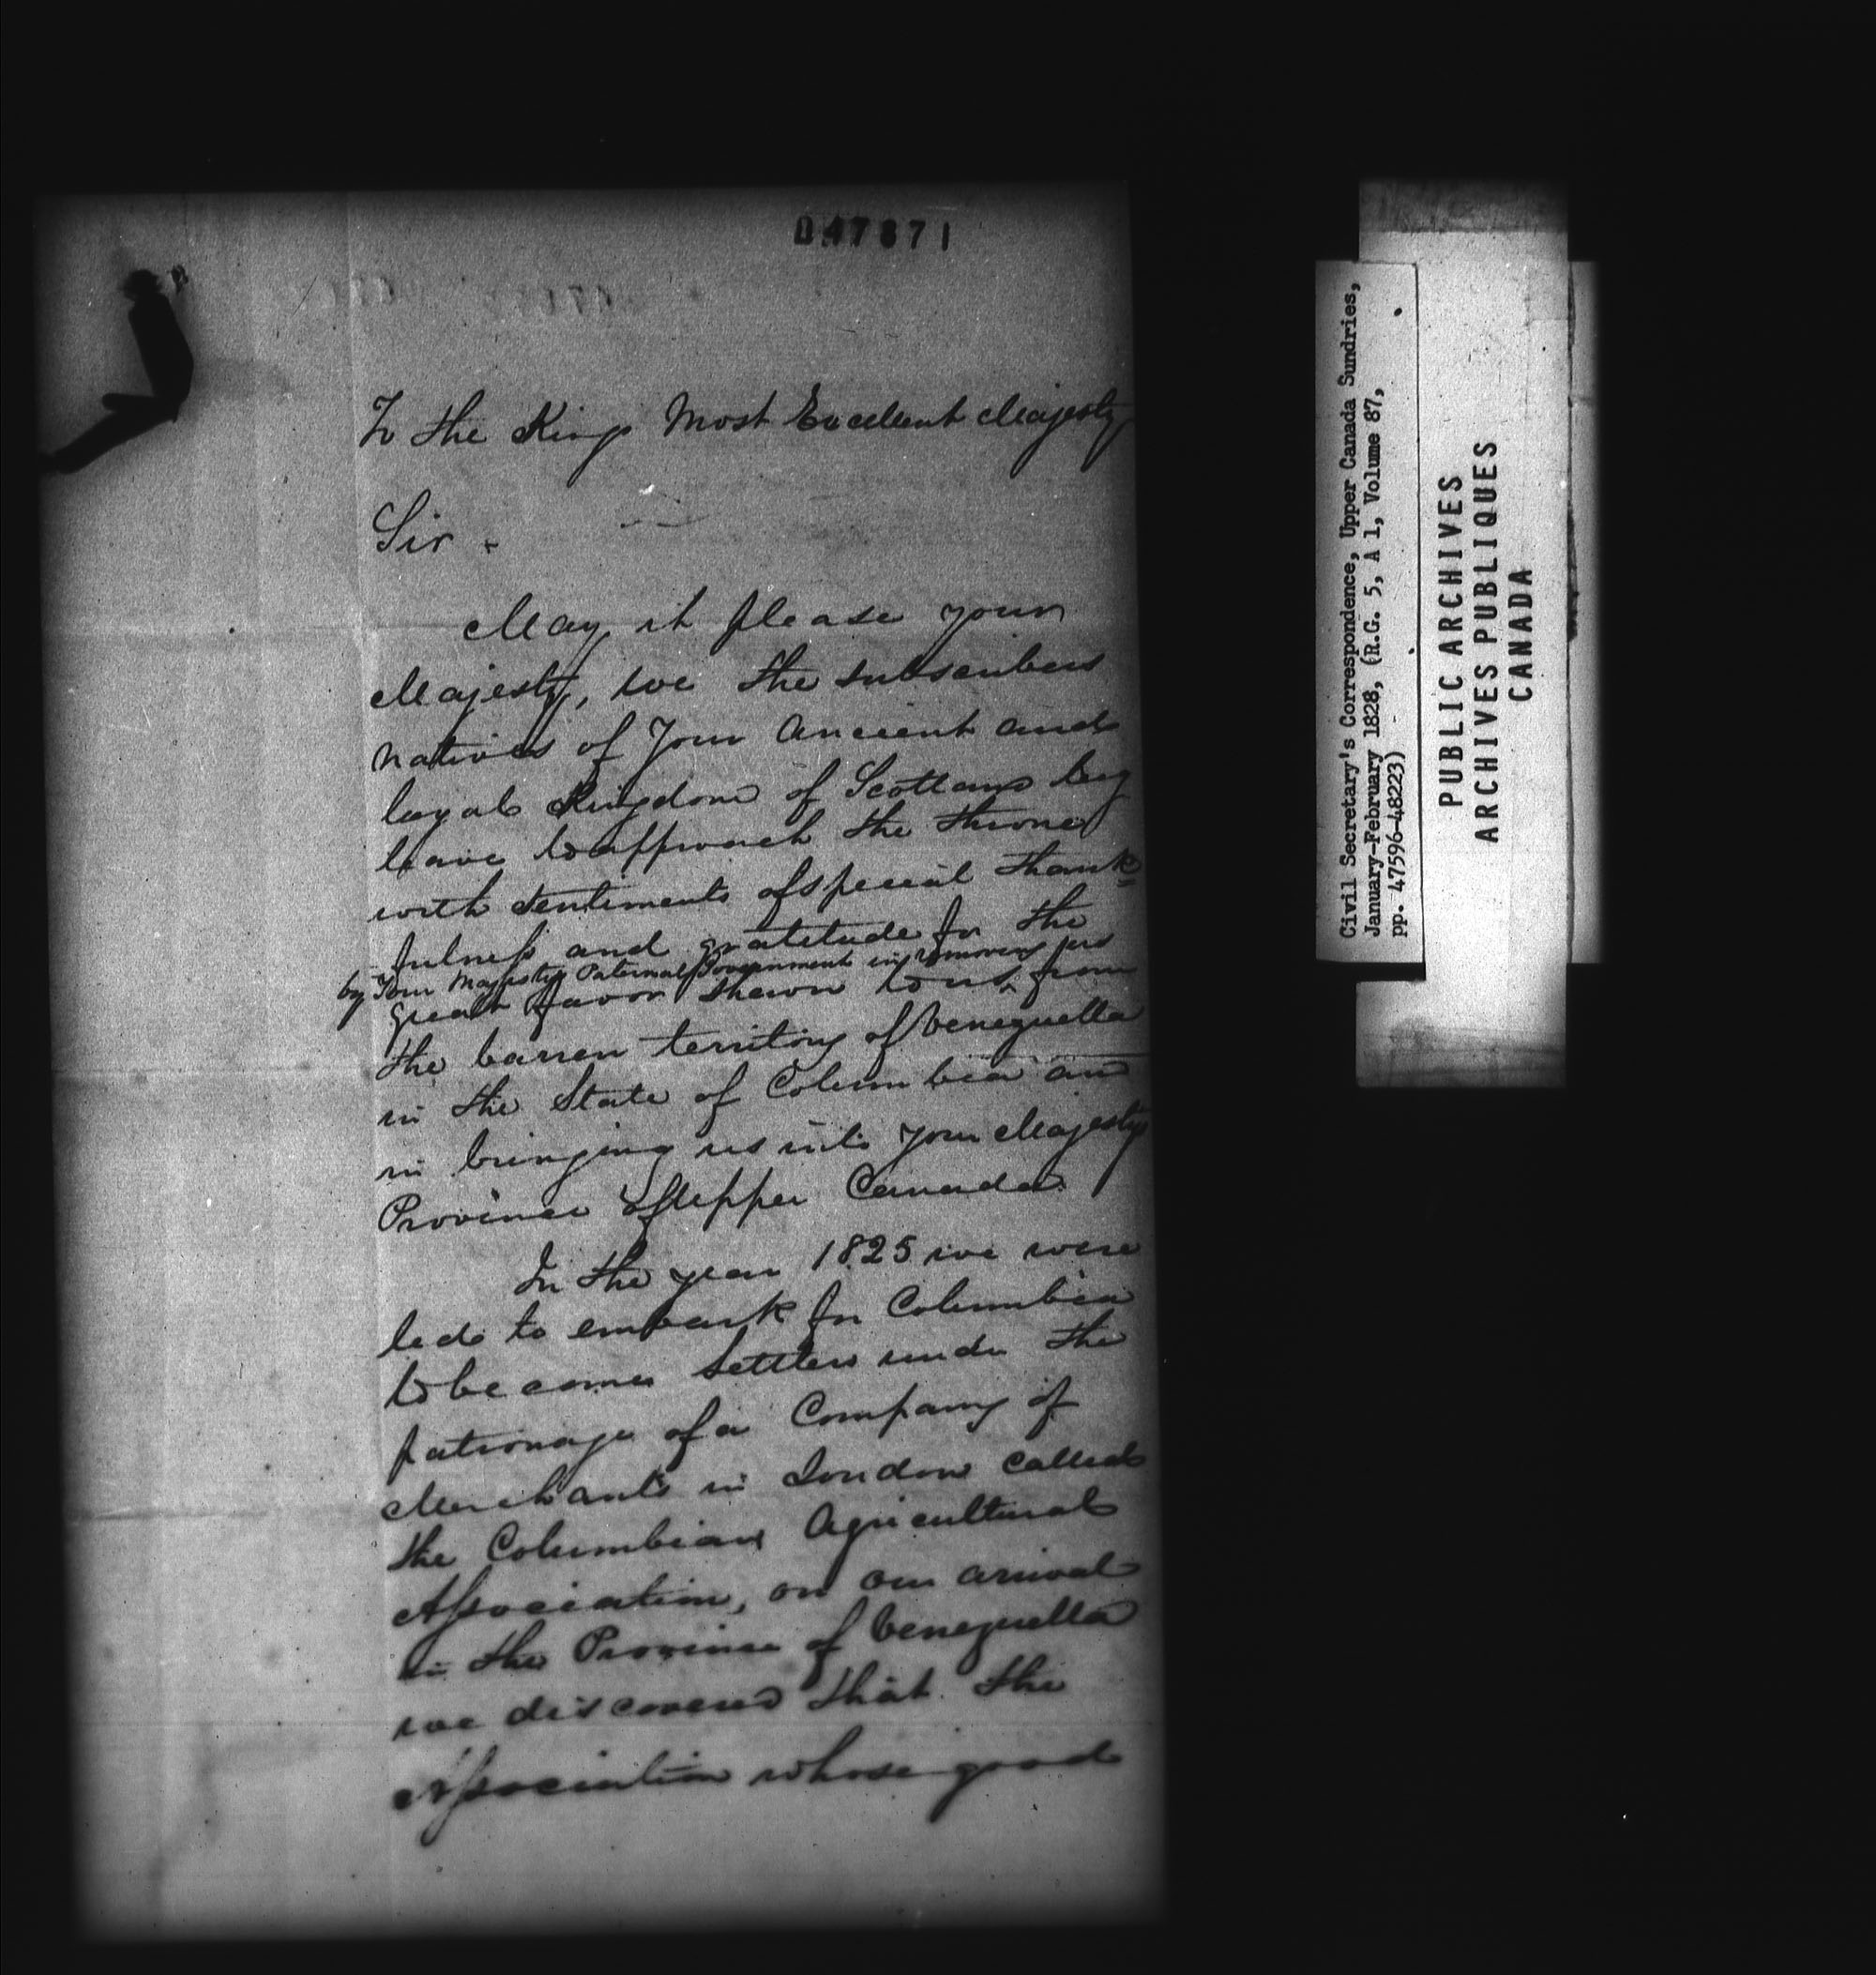 047871
To the Kings Most Excellent Majesty
Sir -
May it please your
Majesty, we the subscribers
natives of Your Ancient and
loyal Kingdom of Scotland beg
leave to approach the throne
with sentiments of special thank=
fulness and gratitude for the
by Your Majestys Paternal Government in removing us
great favor shewn to us ^ from
the barren territory of Venezuella
in the State of Columbia and
in bringing us into your Majestys
Province of Upper Canada.
In the year 1825 we were
led to embark for Columbia
to become settlers under the
patronage of a Company of
Merchants in London called
the Columbian Agricultural
Association, on our arrival
in the Province of Venezuella
we discovered that the
Association whose good
Civil Secretary's Correspondence, Upper Canada Sundries,
January-February 1828, (R.G. 5, A 1, Volume 87,
pp. 47596-48223)
PUBLIC ARCHIVES
ARCHIVES PUBLIQUES
CANADA